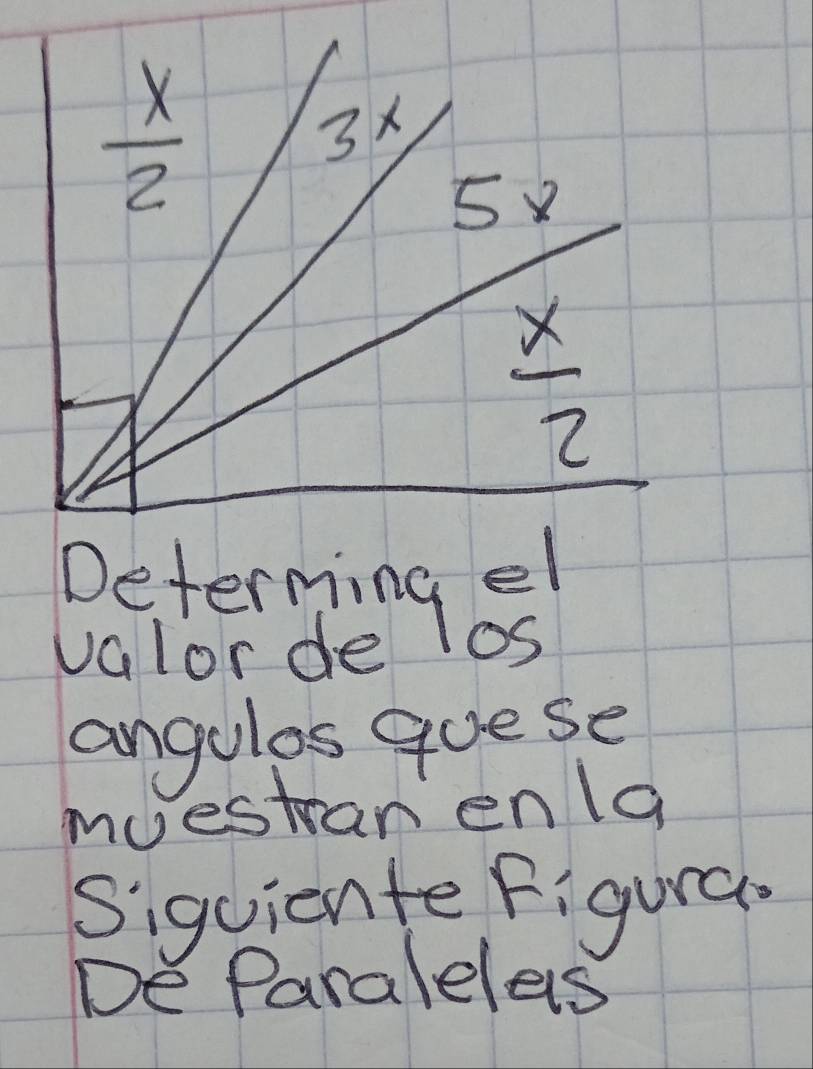 x/2
3x
5x
x/2
Determina el
valor de los
angulos que se
muestran en la
Siguiente Figura.
De Paralelas